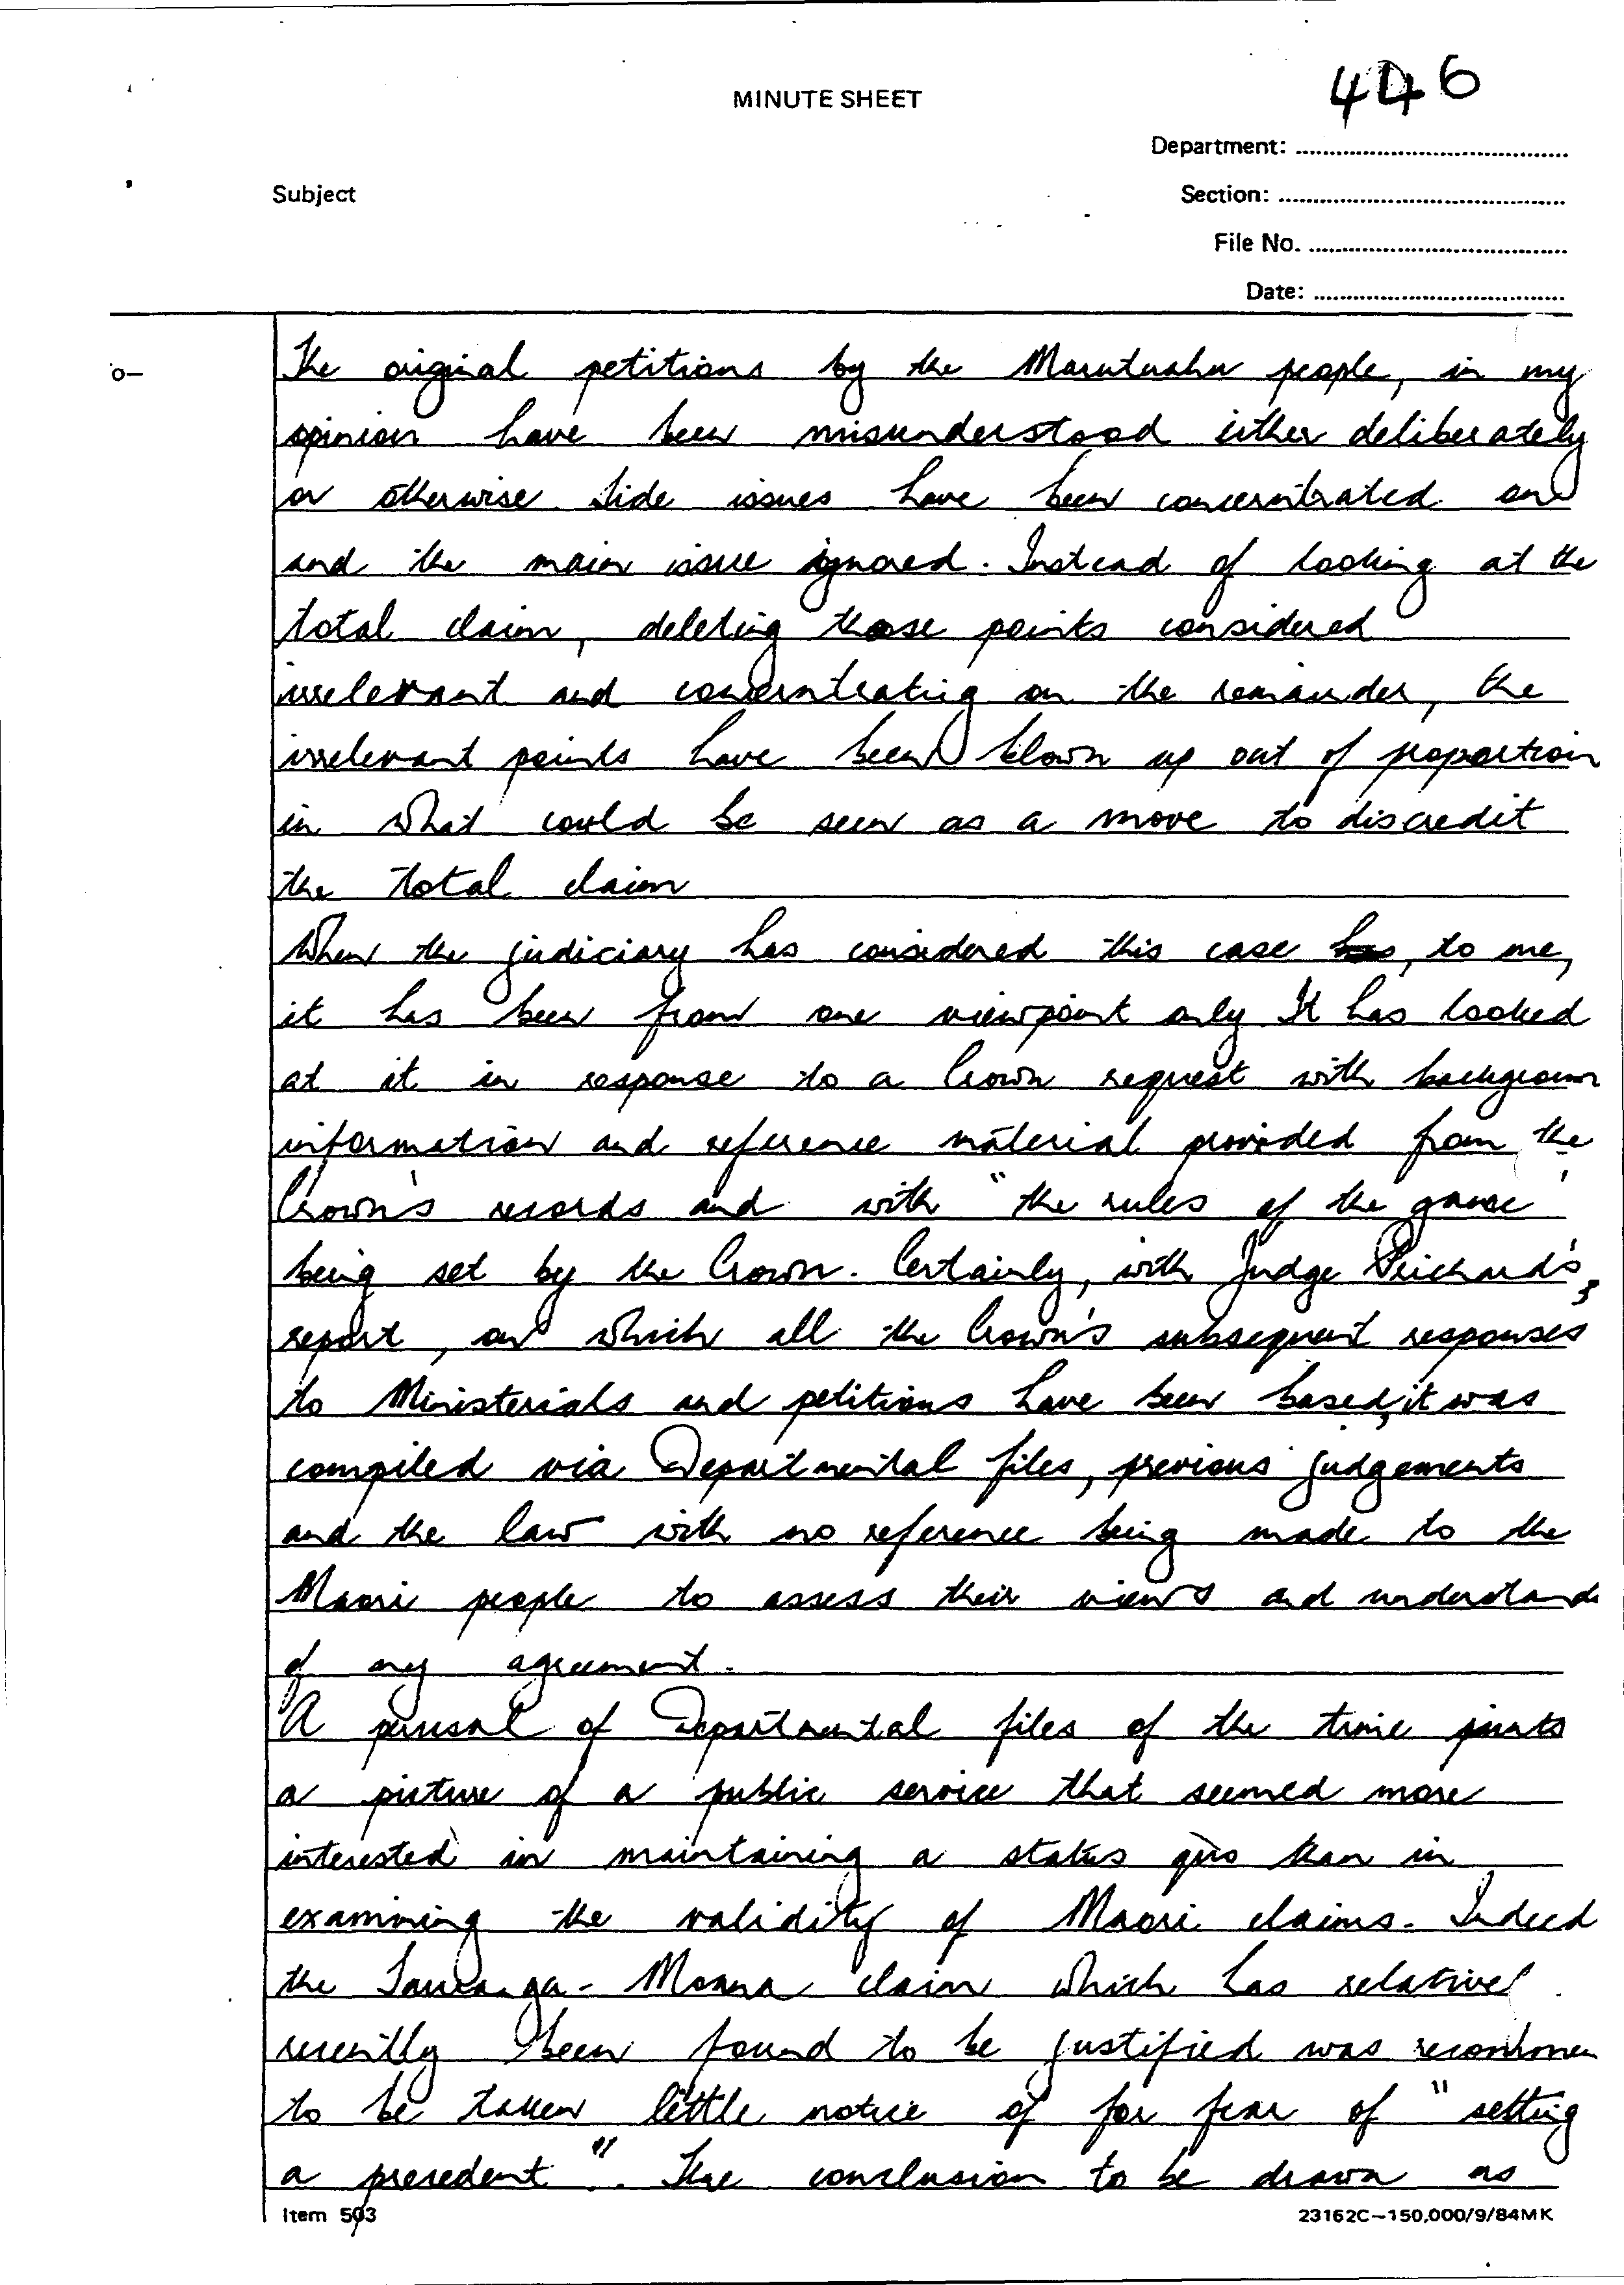 446
MINUTE SHEET
Department:
Subject
Section:
File No.
Date:
The original petitions by the Marutuahu people, in my
opinion have been misunderstood either deliberately
or otherwise. Side issues have been concentrated on
and the main issue ignored. Instead of looking at the
total claim, deleting those points considered
irrelevant and concerntrating on the remainder, the
irrelevant points have been blown up out of proportion
in what could be seen as a move to discredit
the total claim
When the judiciary has considered this case has, to me,
it has been from one viewpoint only It has looked
at it in response to a Crown request with backgroun
information and reference material provided from the
Crown's records and with "the rules of the game"
being set by the Crown. Certainly, with Judge Prichard's,
report, on which all the Crown's subsequent responses
to Ministerials and petitions have been based, it was
compiled via Departmental files, previous judgements
and the law with no reference being made to the
Maori people to assess their views and understand
of any agreement.
A perusal of Departmental files of the time paints
a picture of a public service that seemed more
interested in maintaining a status quo than in
examining the validity of Maori claims. Indeed
the Tauranga-Moana claim which has relativel
recently been found to be justified was recommen
to be taken little notice of for fear of "setting
a presedent". The conclusion to be drawn as
Item 503
23162C-150,000/9/84MK